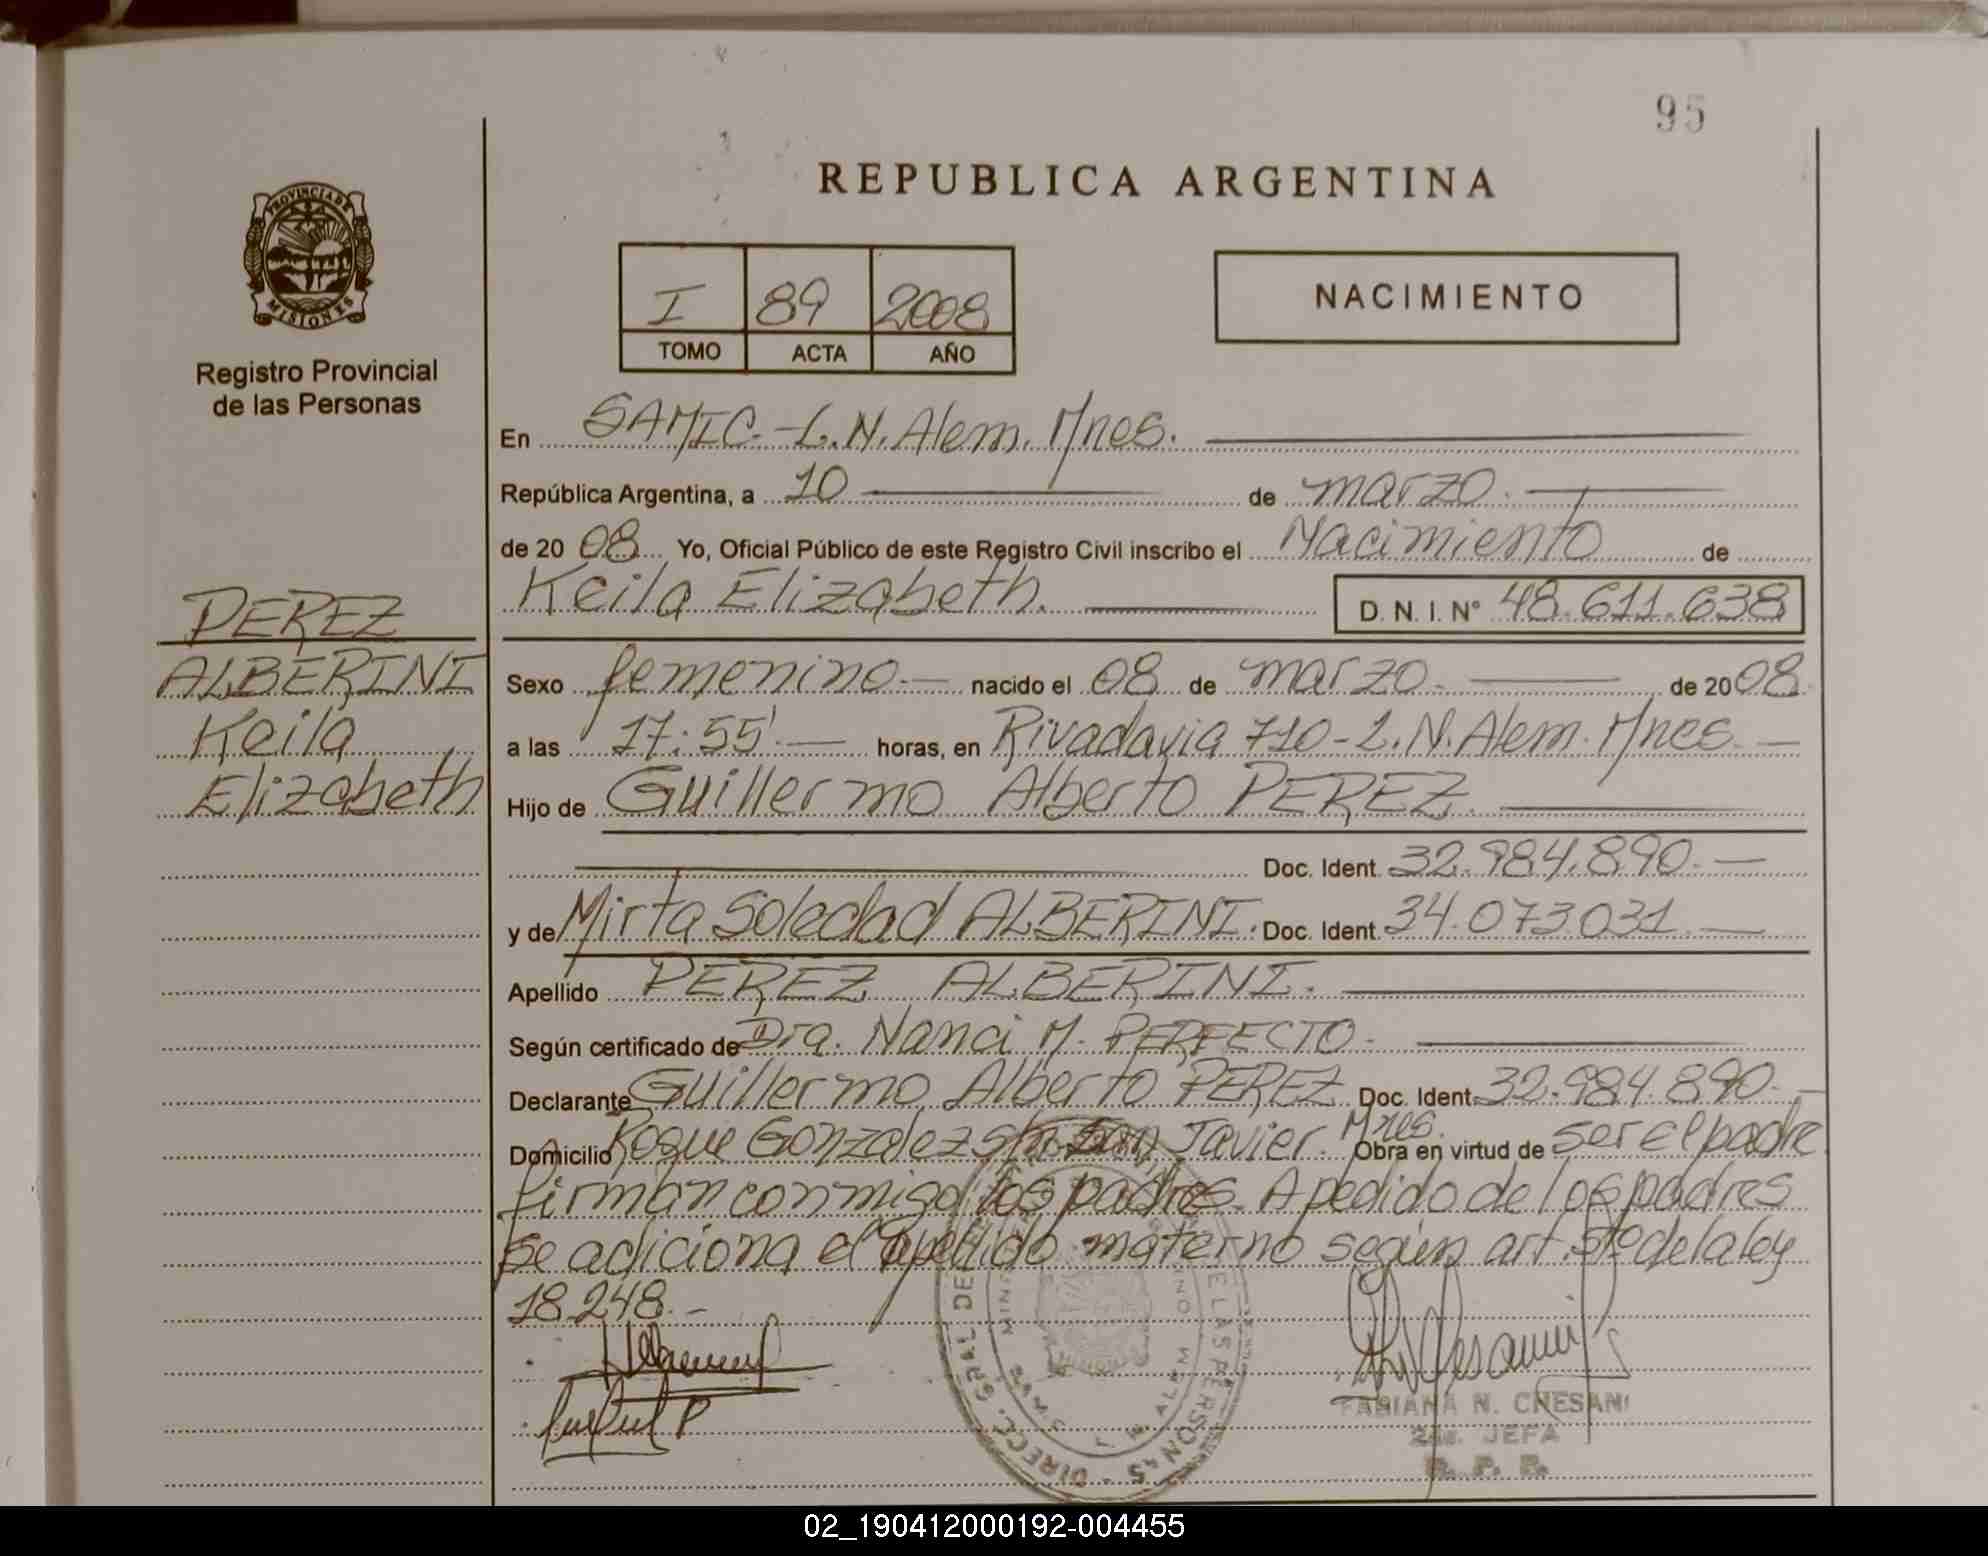 95
REPUBLICA ARGENTINA
PROVINCIA DE
MISIONES
Registro Provincial
de las Personas
I 89 2008
TOMO ACTA AÑO
NACIMIENTO
En SAMIC - L.N. Alem. Mnes.
República Argentina, a 10 de marzo.
de 20 08 Yo, Oficial Público de este Registro Civil inscribo el Nacimiento de
Keila Elizabeth. D. N. I. Nº 48.611.638
PEREZ
ALBERINI
Keila
Elizabeth
Sexo femenino.- nacido el 08 de marzo. de 20 08.
a las 17:55' horas, en Rivadavia 710 - L.N. Alem. Mnes.
Hijo de Guillermo Alberto PEREZ.
Doc. Ident. 32.984.890.-
y de Mirta Soledad ALBERINI. Doc. Ident. 34.073.031.
Apellido PEREZ ALBERINI.
Según certificado de Dra. Nanci M. PERFECTO.
Declarante Guillermo Alberto PEREZ. Doc. Ident. 32.984.890.-
Domicilio Roque Gonzalez s/n San Javier. Mnes. Obra en virtud de ser el padre.
firman conmigo los padres. A pedido de los padres
se adiciona el apellido materno según art. 5to de la ley
18.248.-
DIRECC. GRAL DE
DE LAS PERSONAS
FABIANA N. CHESANI
2da. JEFA
R. P. P.
02_190412000192-004455